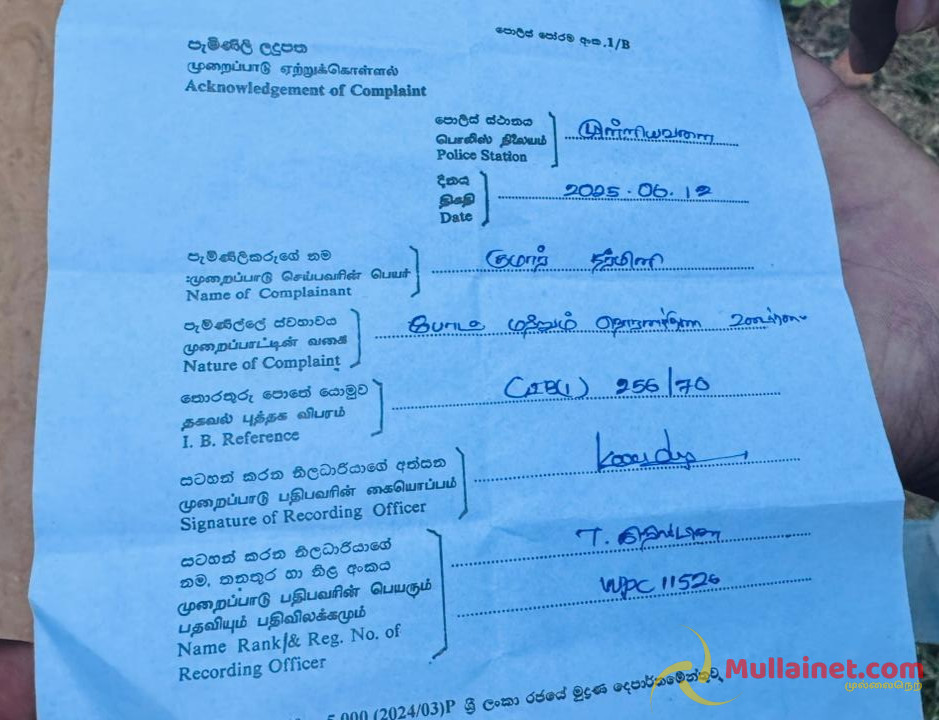 පොලිස් පෝරම අංක.1/B
පැමිණිලි ලදුපත
முறைப்பாடு ஏற்றுக்கொள்ளல்
Acknowledgement of Complaint
පොලිස් ස්ථානය
பொலிஸ் நிலையம்
Police Station
முள்ளியவளை
දිනය
திகதி
Date
2025.06.12
පැමිණිලිකරුගේ නම
முறைப்பாடு செய்பவரின் பெயர்
Name of Complainant
குமார்
පැමිණිල්ලේ ස්වභාවය
முறைப்பாட்டின் வகை
Nature of Complaint
மற்றும்
තොරතුරු පොතේ යොමුව
தகவல் புத்தக விபரம்
I. B. Reference
256/70
සටහන් කරන නිලධාරියාගේ අත්සන
முறைப்பாடு பதிபவரின் கையொப்பம்
Signature of Recording Officer
සටහන් කරන නිලධාරියාගේ
නම, තනතුර හා නිල අංකය
முறைப்பாடு பதிபவரின் பெயரும்
பதவியும் பதிவிலக்கமும்
Name Rank & Reg. No. of
Recording Officer
T.
WPC 11526
5,000 (2024/03)P ශ්‍රී ලංකා රජයේ මුද්‍රණ දෙපාර්තමේන්තුව
Mullainet.com
முல்லைநெற்